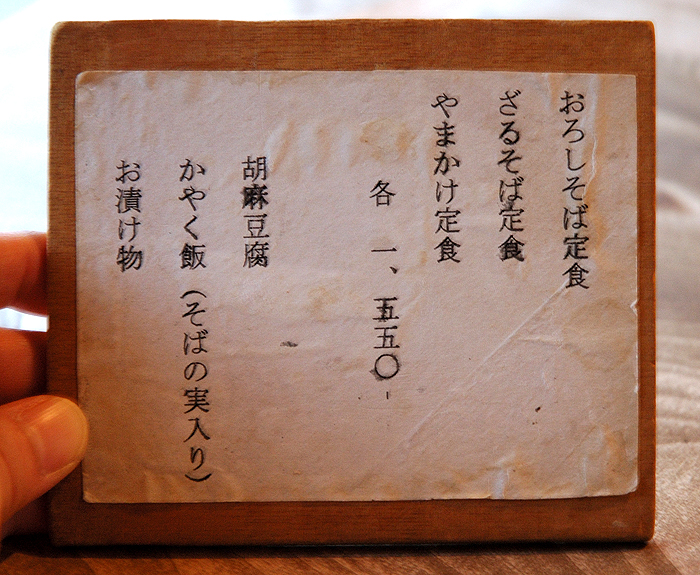 おろしそば定食
ざるそば定食
やまかけ定食
各 一、五五〇
胡麻豆腐
かやく飯（そばの実入り）
お漬け物